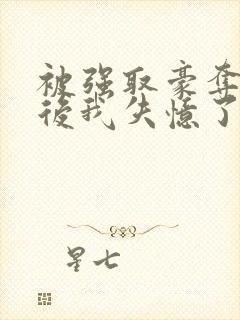 被强取豪夺
後我失憶了
星七